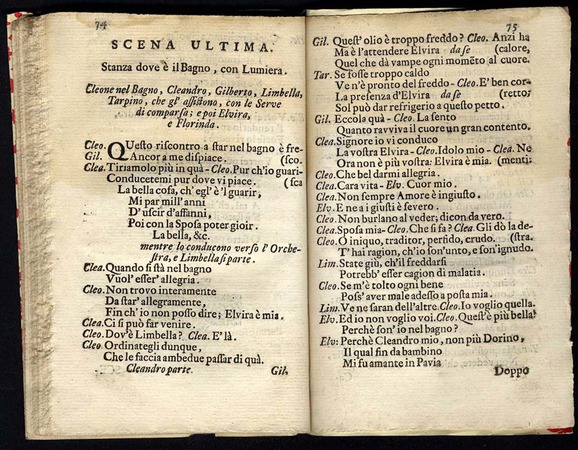 74
SCENA ULTIMA.
Stanza dove è il Bagno, con Lumiera.
Cleone nel Bagno, Cleandro, Gilberto, Limbella,
Tarpino, che gl' assistono, con le Serve
di comparsa; e poi Elvira,
e Florinda.
Cleo. QUesto riscontro a star nel bagno è fre-
Gil. Ancor a me dispiace. (sco.
Clea. Tiriamolo più in quà - Cleo. Pur ch'io guari-
Conducetemi pur dove vi piace. (sca
La bella cosa, ch' egl' è 'l guarir,
Mi par mill' anni
D' uscir d'affanni,
Poi con la Sposa poter gioir.
La bella, &c.
mentre lo conducono verso l' Orche-
stra, e Limbella si parte.
Clea. Quando si stà nel bagno
Vuol' esser' allegria.
Cleo. Non trovo interamente
Da star' allegramente,
Fin ch'io non posso dire; Elvira è mia.
Clea. Ci si può far venire.
Cleo. Dov'è Limbella? Clea. E' là.
Cleo Ordinategli dunque,
Che le faccia ambedue passar di quà.
Cleandro parte. Gil.
75
Gil. Quest' olio è troppo freddo? Cleo. Anzi ha
Ma è l'attendere Elvira da se (calore,
Quel che dà vampe ogni momēto al cuore.
Tar. Se fosse troppo caldo
Ve n'è pronto del freddo - Cleo. E' ben cor-
La presenza d'Elvira da se (retto;
Sol può dar refrigerio a questo petto.
Gil. Eccola quà - Cleo. La sento
Quanto ravviva il cuore un gran contento.
Clea. Signore io vi conduco
La vostra Elvira - Cleo. Idolo mio - Clea. Ne
Ora non è più vostra: Elvira è mia. (menti:
Cleo. Che bel darmi allegria.
Clea. Cara vita - Elv. Cuor mio.
Clea. Non sempre Amore è ingiusto.
Elv. E ne a i giusti è severo.
Cleo. Non burlano al veder; dicon da vero.
Clea. Sposa mia - Cleo. Che si fa? Clea. Gli dò la de-
Cleo. O iniquo, traditor, perfido, crudo. (stra.
T' hai ragion, ch'io son'unto, e son'ignudo.
Lim. State giù, ch'il freddarsi
Potrebb' esser cagion di malatia.
Cleo. Se m'è tolto ogni bene
Poss' aver male adesso a posta mia.
Lim. Ve ne saran dell'altre. Cleo. Io voglio quella.
Elv. Ed io non voglio voi. Cleo. Quest'è più bella!
Perchè son' io nel bagno?
Elv: Perchè Cleandro mio, non più Dorino,
Il qual fin da bambino
Mi fu amante in Pavia
Doppo